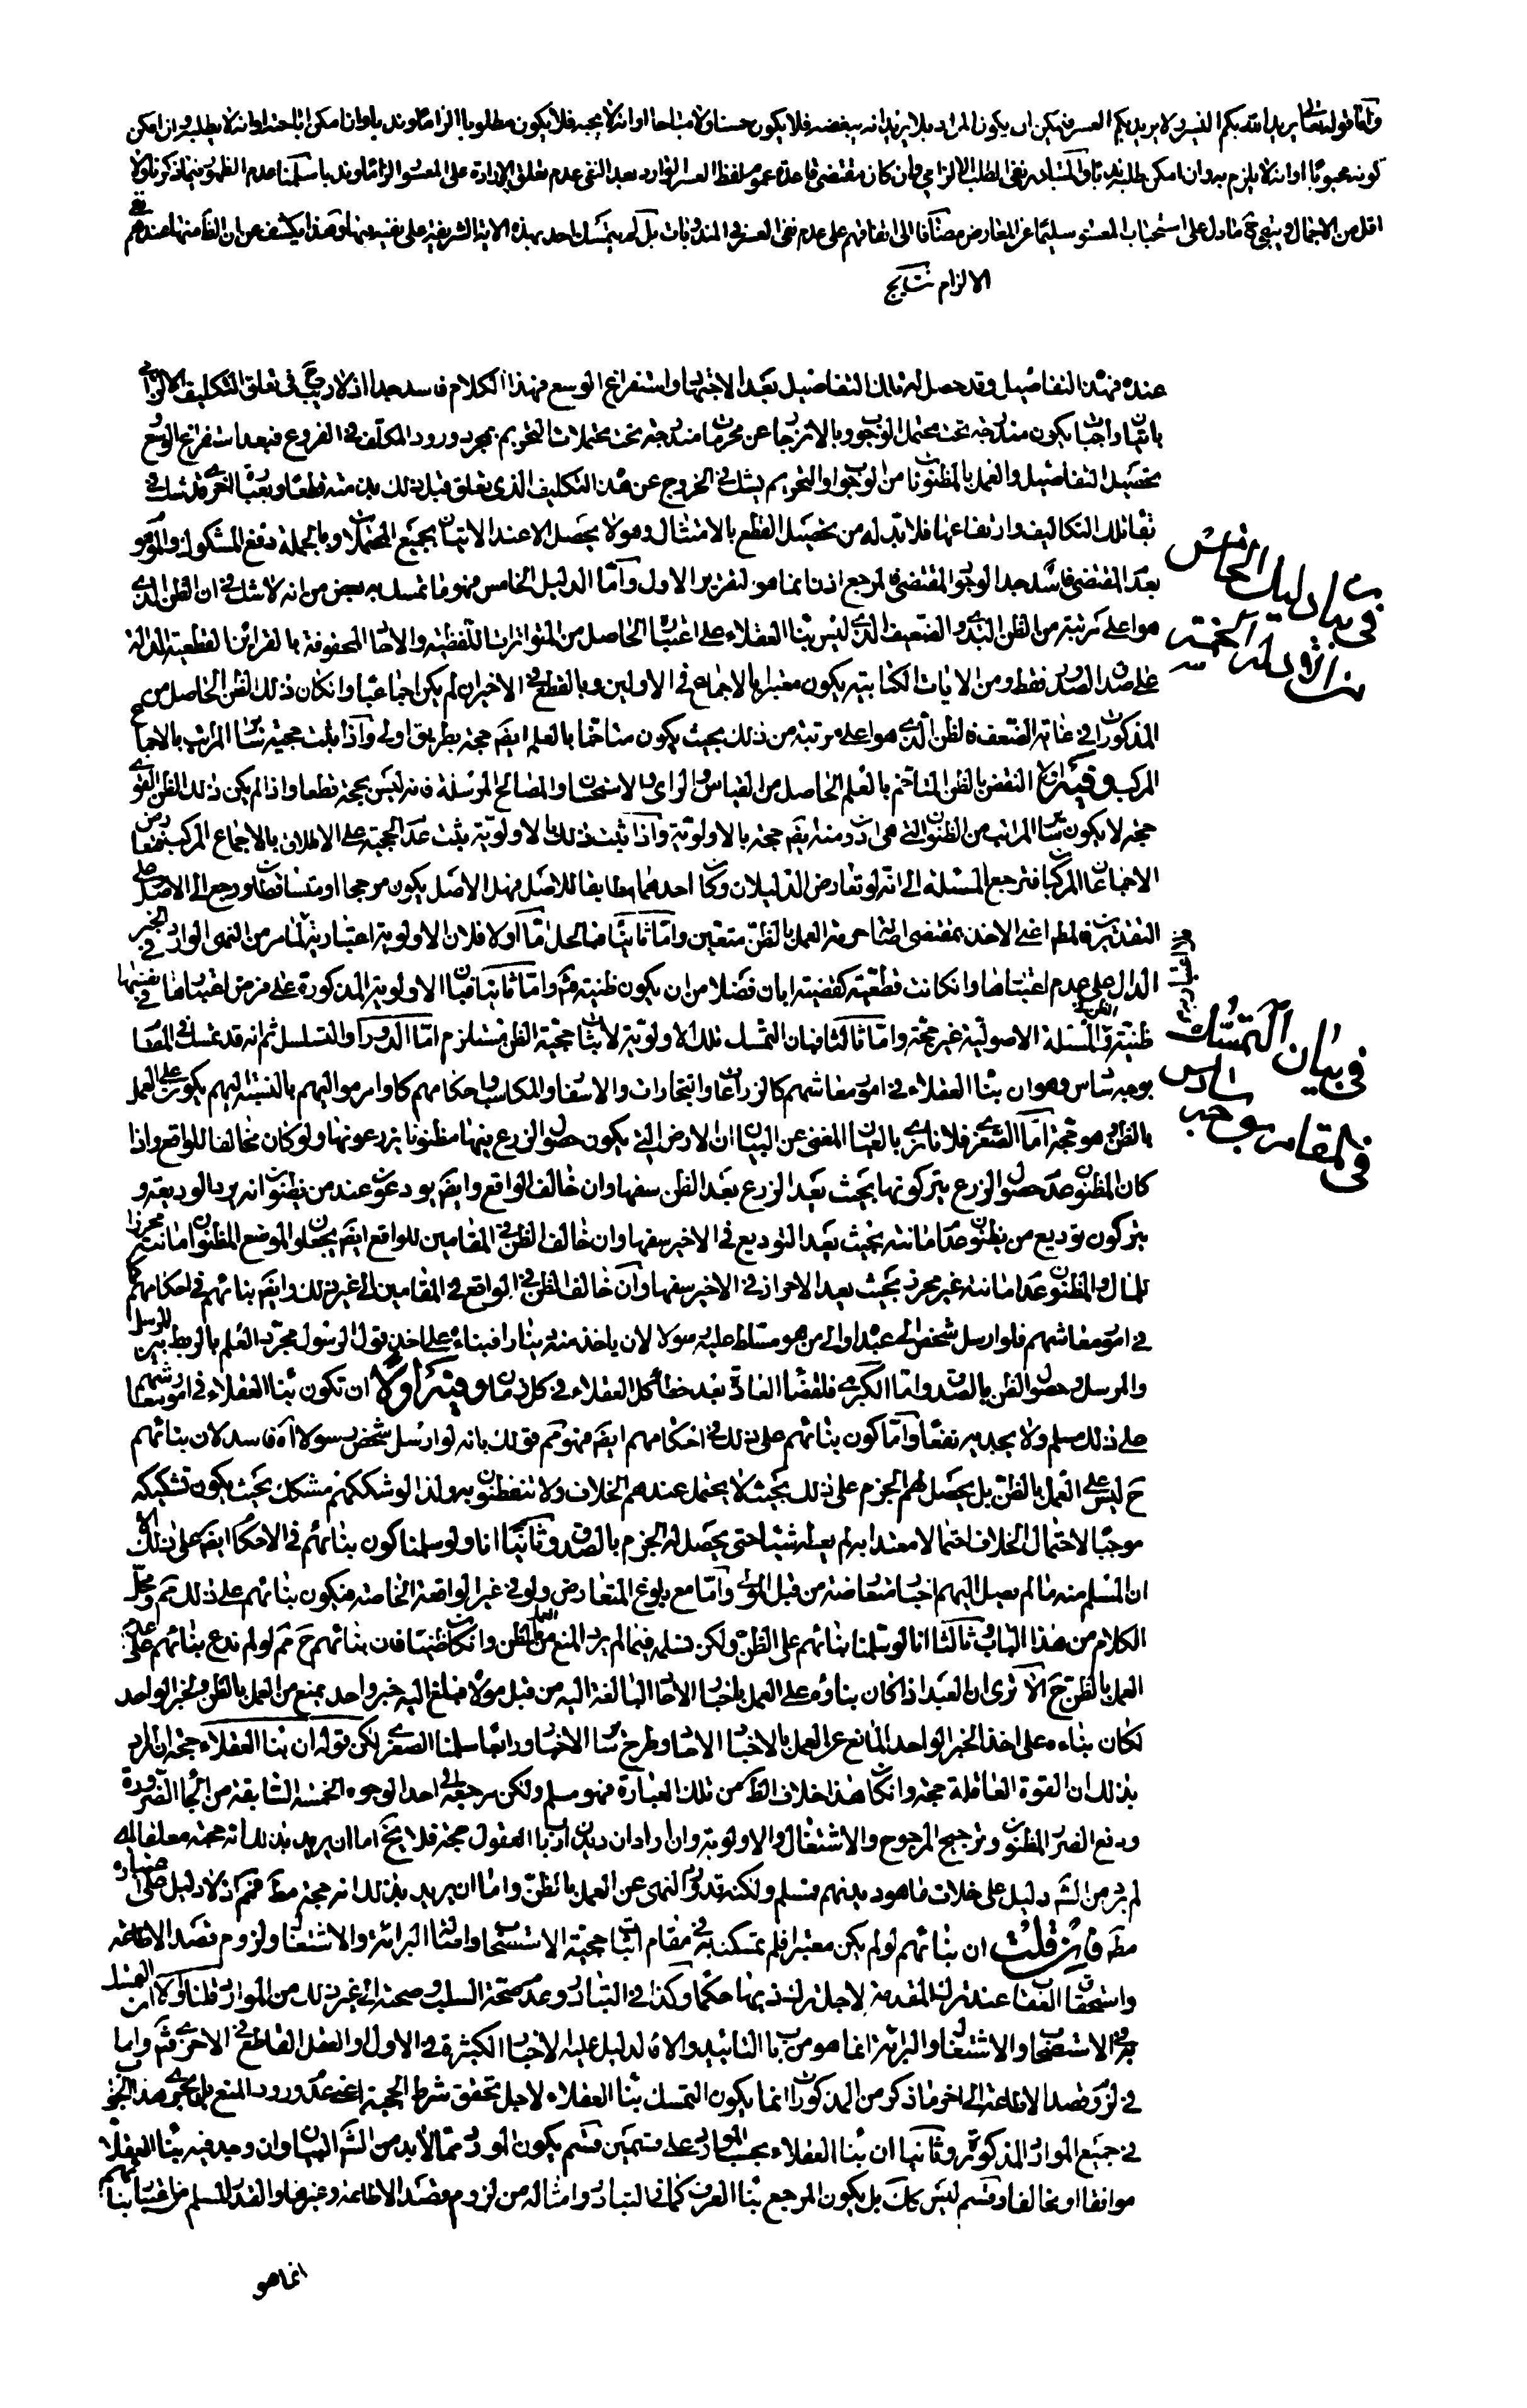 واما قوله تعالى يريد الله بكم اليسر ولا يريد بكم العسر فيمكن ان يكون المراد بلا يريد انه يبغضه فلا يكون حسنا ولا مباحا او انه لا يحبه فلا يكون مطلوبا الزاما وندبا وان امكن اباحته او انه لا يطلبه وان امكن
كونه محبوبا او انه لا يلزم به وان امكن طلبه ندبا والمتبادر نفى الطلب الالزامي وان كان مقتضى قاعدة عموم لفظ العسر الوارد بعد النفى عدم تعلق الارادة على المعسور الزاما وندبا سلمنا عدم الظهور فيما ذكرنا ولا
اقل من الاجمال ويبقى ح ما دل على استحباب المعسور سليما عن المعارض مضافا الى اتفاقهم على عدم نفى العسر في المندوبات بل لم يتمسك احد بهذه الاية الشريفة على نفيه فيها وهذا يكشف عن ان الظ منها عندهم نفى
الالزام نتايج
عنده فهذه التفاصيل وقد حصل له تلك التفاصيل بعد الاجتهاد واستفراغ الوسع فهذا الكلام فاسد جدا اذ لا ريب في تعلق التكليف الالزامي
باتيان واجبات يكون مندرجة تحت محتمل الوجوب وبالانزجار عن محرمات مندرجة تحت محتملات التحريم بمجرد ورود المكلف في الفروع فبعد استفراغ الوسع
بتحصيل التفاصيل والعمل بالمظنونات من الوجوب او التحريم يشك في الخروج عن هذه التكليف الذى تعلق قبل ذلك بذمته قطعا وبعبارة اخرى قد شك في
بقاء تلك التكاليف وارتفاعها فلا بد له من تحصيل القطع بالامتثال وهو لا يحصل الا عند الاتيان بجميع المحتملات وبالجملة دفع المشكوك والموهوم
بعد المقتضى فاسد جدا لوجود المقتضى فالمرجع اذن انما هو التقرير الاول واما الدليل الخامس فهو ما تمسك به بعض من انه لا شك في ان الظن الذي
هو اعلى مرتبة من الظن البدوي والضعيف الذى ليس بناء العقلاء على اعتباره الحاصل من المتواترات اللفظية والاخبار المحفوفة بالقرائن القطعية الدالة
على صدق الصدور فقط ومن الايات الكتابية يكون معتبرا بالاجماع في الاولين وبالقطع في الاخير ان لم يكن اجماعيا وان كان ذلك الظن الحاصل من
المذكورات في غاية الضعف فالظن الذي هو اعلى مرتبة من ذلك بحيث يكون متاخما بالعلم ايضم حجة بطريق اولى واذا ثبت حجية ثبت سائر المراتب بالاجماع
المركب وفيه اولا النقض بالظن المتاخم بالعلم الحاصل من القياس والراي والاستحسان والمصالح المرسلة فانه ليس بحجة قطعا واذا لم يكن ذلك الظن القوي
حجة لا يكون سائر المراتب من الظنون التي هي ادون منه ايضم حجة بالاولوية واذا ثبت ذلك بالاولوية يثبت عدم الحجية على الاطلاق بالاجماع المركب فتعارض
الاجماعان المركبان فترجع المسئلة الى انه لو تعارض الدليلان وكان احدهما مطابقا للاصل فهل الاصل يكون مرجحا او متساقطان ويرجع الى الاصل على
التقديرين فالمطم اعنى الاخذ بمقتضى اصالة حرمة العمل بالظن متعين واما ثانيا فبالحل اما اولا فلان الاولوية اعتبارية لما مر من النهى الوارد في الخبر
الدال على عدم اعتبارها وان كانت قطعية كقضية ابان فضلا من ان يكون ظنية ثم واما ثانيا فبان الاولوية المذكورة على فرض اعتبارها في نفسها
ظنية وفي المسئلة الاصولية غير حجة واما ثالثا فبان التمسك بتلك الاولوية لاثبات حجية الظن يستلزم اما الدور او التسلسل ثم انه قد تمسك في المقام
بوجه سادس وهو ان بناء العقلاء في امور معاشهم كالزراعات والتجارات والاسفار والمكاسب واحكامهم كاوامر مواليهم بالنسبة اليهم يكون على العمل
بالظن وهو حجة اما الصغرى فلانا نرى بالعيان المغنى عن البيان ان الارض التي يكون حصول الزرع فيها مظنونا يزرعونها ولو كان مخالفا للواقع واذا
كان المظنون عدم حصول الزرع يتركونها بحيث يعد الزرع بعد الظن سفها وان خالف الواقع وايضم يودعون عند من يظنون انه يرد الوديعة و
يتركون توديع من يظنون عدم امانته بحيث يعد التوديع في الاخير سفها وان خالف الظن في المقامين للواقع ايضم يجعلون الموضع المظنون امانته محرزا
للمال والمظنون عدم امانته غير محرز بحيث يعد الاحراز في الاخير سفها وان خالف الظن في الواقع في المقامين الى غير ذلك وايضم بنائهم في احكامهم كما
في امور معاشهم فلو ارسل شخص الى عبده او الى من هو مسلط عليه رسولا لان ياخذ منه دينارا فبناءه على اخذ بقول الرسول بمجرد العلم بالربط بين الرسول
والمرسل وحصول الظن بالصدق واما الكبرى فلقضاء العادة ببعد خطأ كل العقلاء في كل زمان وفيه اولا ان تكون بناء العقلاء في امور معاشهم
على ذلك مسلم ولا يجديه نفعا واما كون بنائهم على ذلك في احكامهم ايضم فهو مم قولك بانه لو ارسل شخص رسولا اه فاسد لان بنائهم
ح ليس على العمل بالظن بل يحصل لهم الجزم على ذلك بحيث لا يحتمل عندهم الخلاف ولا يتفطنون به ولذا لو شككهم مشكك بحيث يكون تشكيكه
موجبا لاحتمال الخلاف احتمالا معتدا به لم يعطه شيئا حتى يحصل له الجزم بالصدق وثانيا انا ولو سلمنا كون بنائهم في الاحكام ايضم على ذلك الا
ان المسلم منه ما لم يصل اليهم اخبار متعارضة من قبل المولى واما مع بلوغ المتعارض ولو في غير الواقعة الخاصة فيكون بنائهم على ذلك مم ومحل
الكلام من هذا الباب وثالثا انا لو سلمنا بنائهم على الظن ولكن نسلمه فيما لم يرد المنع من العمل بالظن وان كان ظنيا فان بنائهم ح مم لو لم ندع بنائهم على عدم
العمل بالظن ح الا ترى ان العبد اذا كان بناؤه على العمل باخبار الاحاد البالغة اليه من قبل مولاه فبلغ اليه خبر واحد بمنع من العمل بالظن والخبر الواحد
لكان بناءه على اخذ الخبر الواحد المانع عن العمل بالاخبار الاحاد وطرح سائر الاخبار ورابعا سلمنا الصغرى لكن قوله ان بناء العقلاء حجة ان اراد
بذلك ان القوة العاقلة حجة وان كان هذا خلاف الظ من تلك العبارة فهو مسلم ولكن مرجعه الى احد الوجوه الخمسة السابقة من الجاء الضرورة
ودفع الضرر المظنون وترجيح المرجوح والاشتغال والاولوية وان اراد ان ديدن ارباب العقول حجة فلا يخ اما ان يريد بذلك انه حجة معلقا ما
لم يرد من الشرع دليل على خلاف ما هو ديدنهم فمسلم ولكنه قد ورد النهى عن العمل بالظن واما ان يريد بذلك انه حجة مطم فمم اذ لا دليل على اعتباره
مطم فان قلت ان بنائهم لو لم يكن معتبرا فلم تمسكت به في مقام اثبات حجية الاستصحاب واصالة البرائة والاشتغال ولزوم قصد الاطاعة
واستحقاق العقاب عند ترك المقدمة لاجل ترك ذيها حكما وكذا في التبادر وعدم صحة السلب وصحته الى غير ذلك من الموارد قلنا اولا ان التمسك
به في الاستصحاب والاشتغال والبرائة انما هو من باب التائيد والا فالدليل عليه الاخبار الكثيرة في الاول والعقل القاطع في الاخرى ثم واما
في لزوم قصد الاطاعة الى اخر ما ذكر من المذكورات انما يكون التمسك ببناء العقلاء لاجل تحقق شرط الحجية اعنى عدم ورود المنع بل يجرى هذا الجواب
في جميع الموارد المذكورة وثانيا ان بناء العقلاء بحسب الموارد على قسمين قسم يكون المورد مما لا بد من الشرع البيان وان وجد فيه بناء العقلاء
موافقا او مخالفا وقسم ليس كك بل يكون المرجع بناء العرف كما في التبادر وامثاله من لزوم قصد الاطاعة وغيرها والقدر المسلم من اعتبار بنائهم
انما هو
في بيان دليل الخامس
من الادلة الخمسة
في بيان التمسك
في المقام بوجه سادس